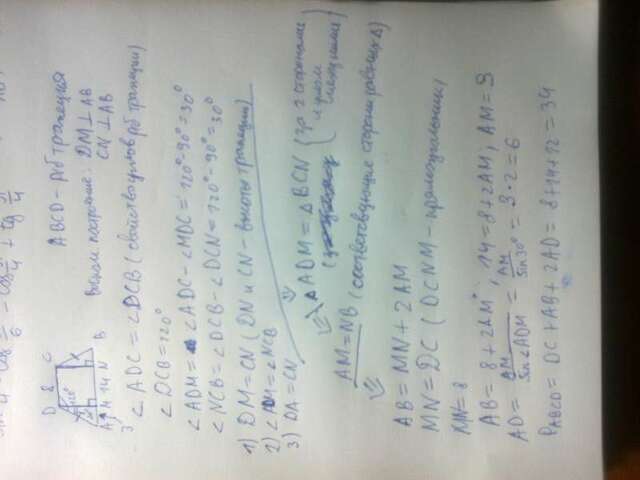 D 8 C
120°
A M 14 N B
3
ABCD - рб трапеция
построение: DM ⊥ AB
CN ⊥ AB
∠ ADC = ∠DCB (свойство углов рб трапеции)
∠ DCB = 120°
∠ ADM = ∠ ADC - ∠ MDC = 120° - 90° = 30°
∠ NCB = ∠ DCB - ∠ DCN = 120° - 90° = 30°
1) DM = CN (DN и CN - высоты трапеции)
2) ∠ ADM = ∠ NCB
3) DA = CN
⇓ Δ ADM = Δ BCN (за 2 сторонами
и углом
между ними)
AM = NB (соответствующие стороны равных Δ)
AB = MN + 2AM
MN = DC (DCNM - прямоугольник)
MN = 8
AB = 8 + 2AM ; 14 = 8 + 2AM ; AM = 3
AD = AM / sin∠ADM = AM / sin 30° = 3·2 = 6
P ABCD = DC + AB + 2AD = 8 + 14 + 12 = 34